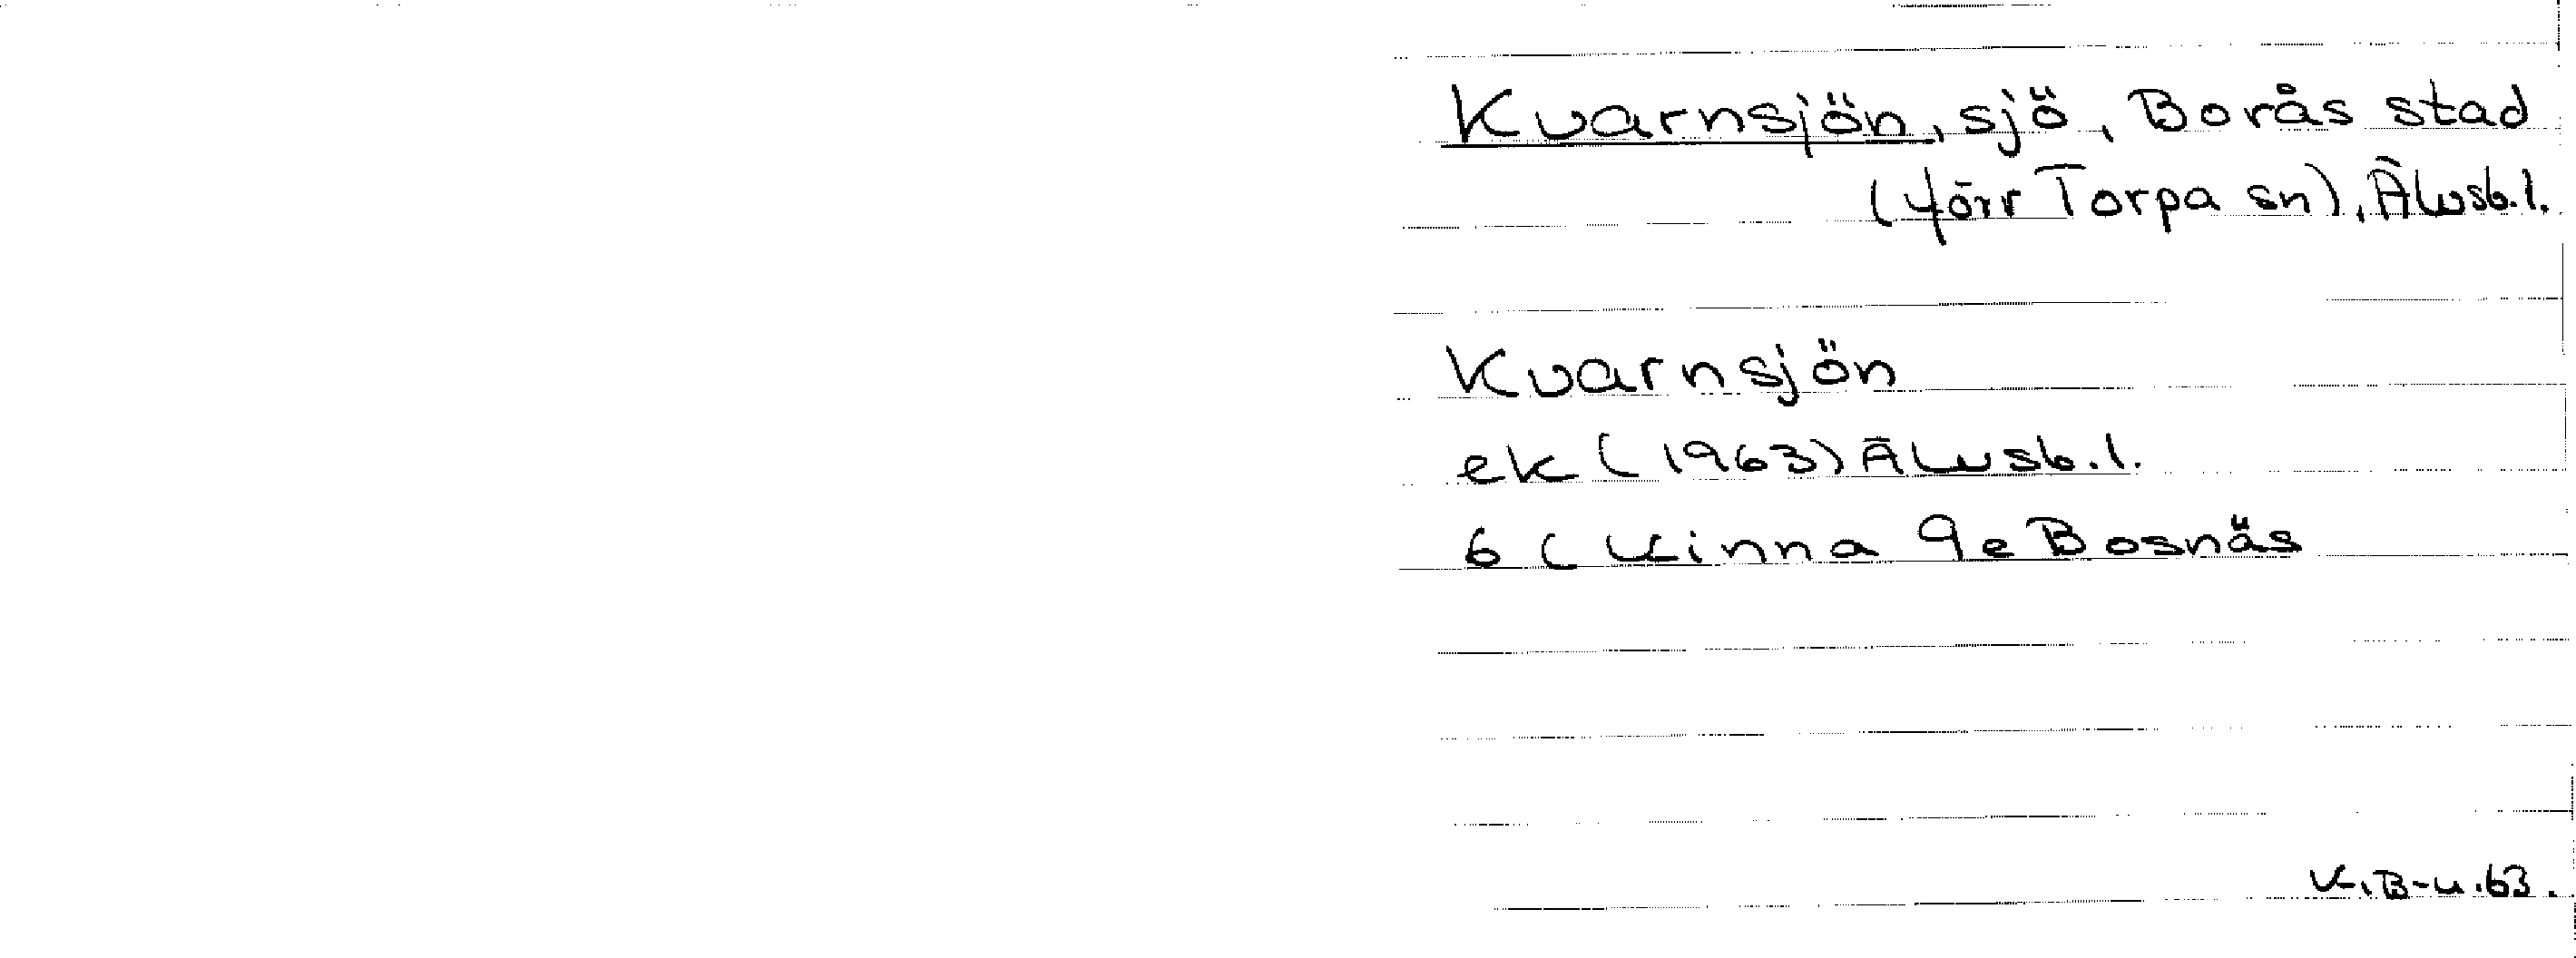 Kvarnsjön, sjö, Borås stad
(förr Torpa sn), Älvsb. l.
Kvarnsjön
ek (1963) Älvsb. l.
6 C Kinna 9e Bosnäs
K.B-u.63.